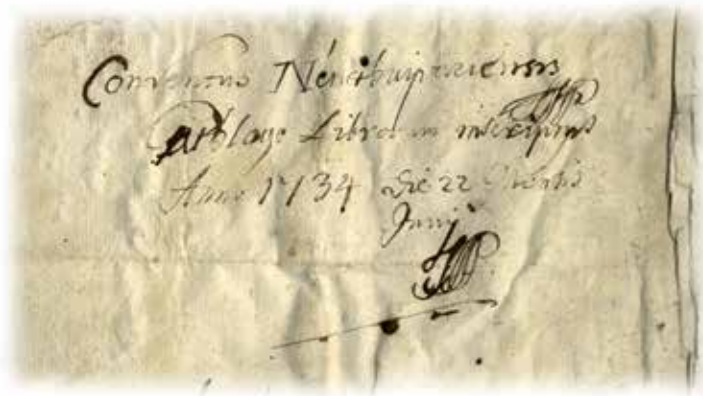 Conventus Németujváriensis
Catalogo Librorum inscriptus
Anno 1734 die 22 Mensis
Junij